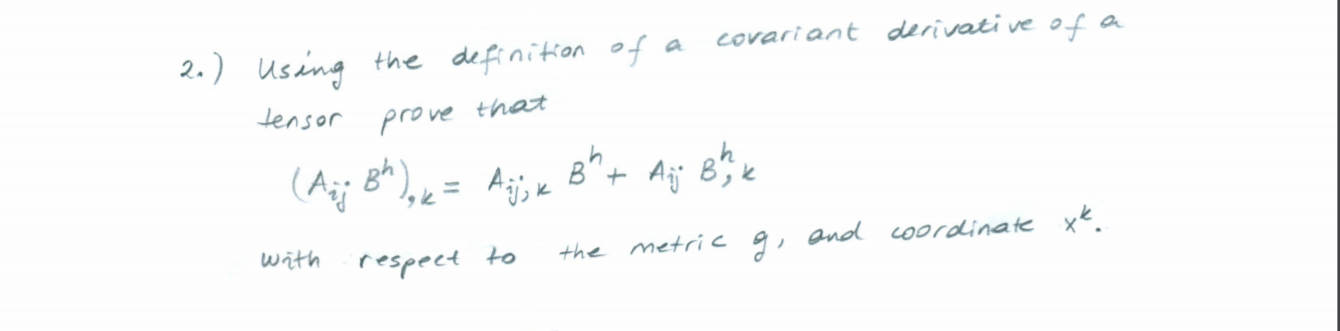 2.) Using the definition of a covariant derivative of a
tensor prove that
(Aij Bʰ),k = Aij,k Bʰ + Aij Bʰ,k
with respect to the metric g, and coordinate xᵏ.